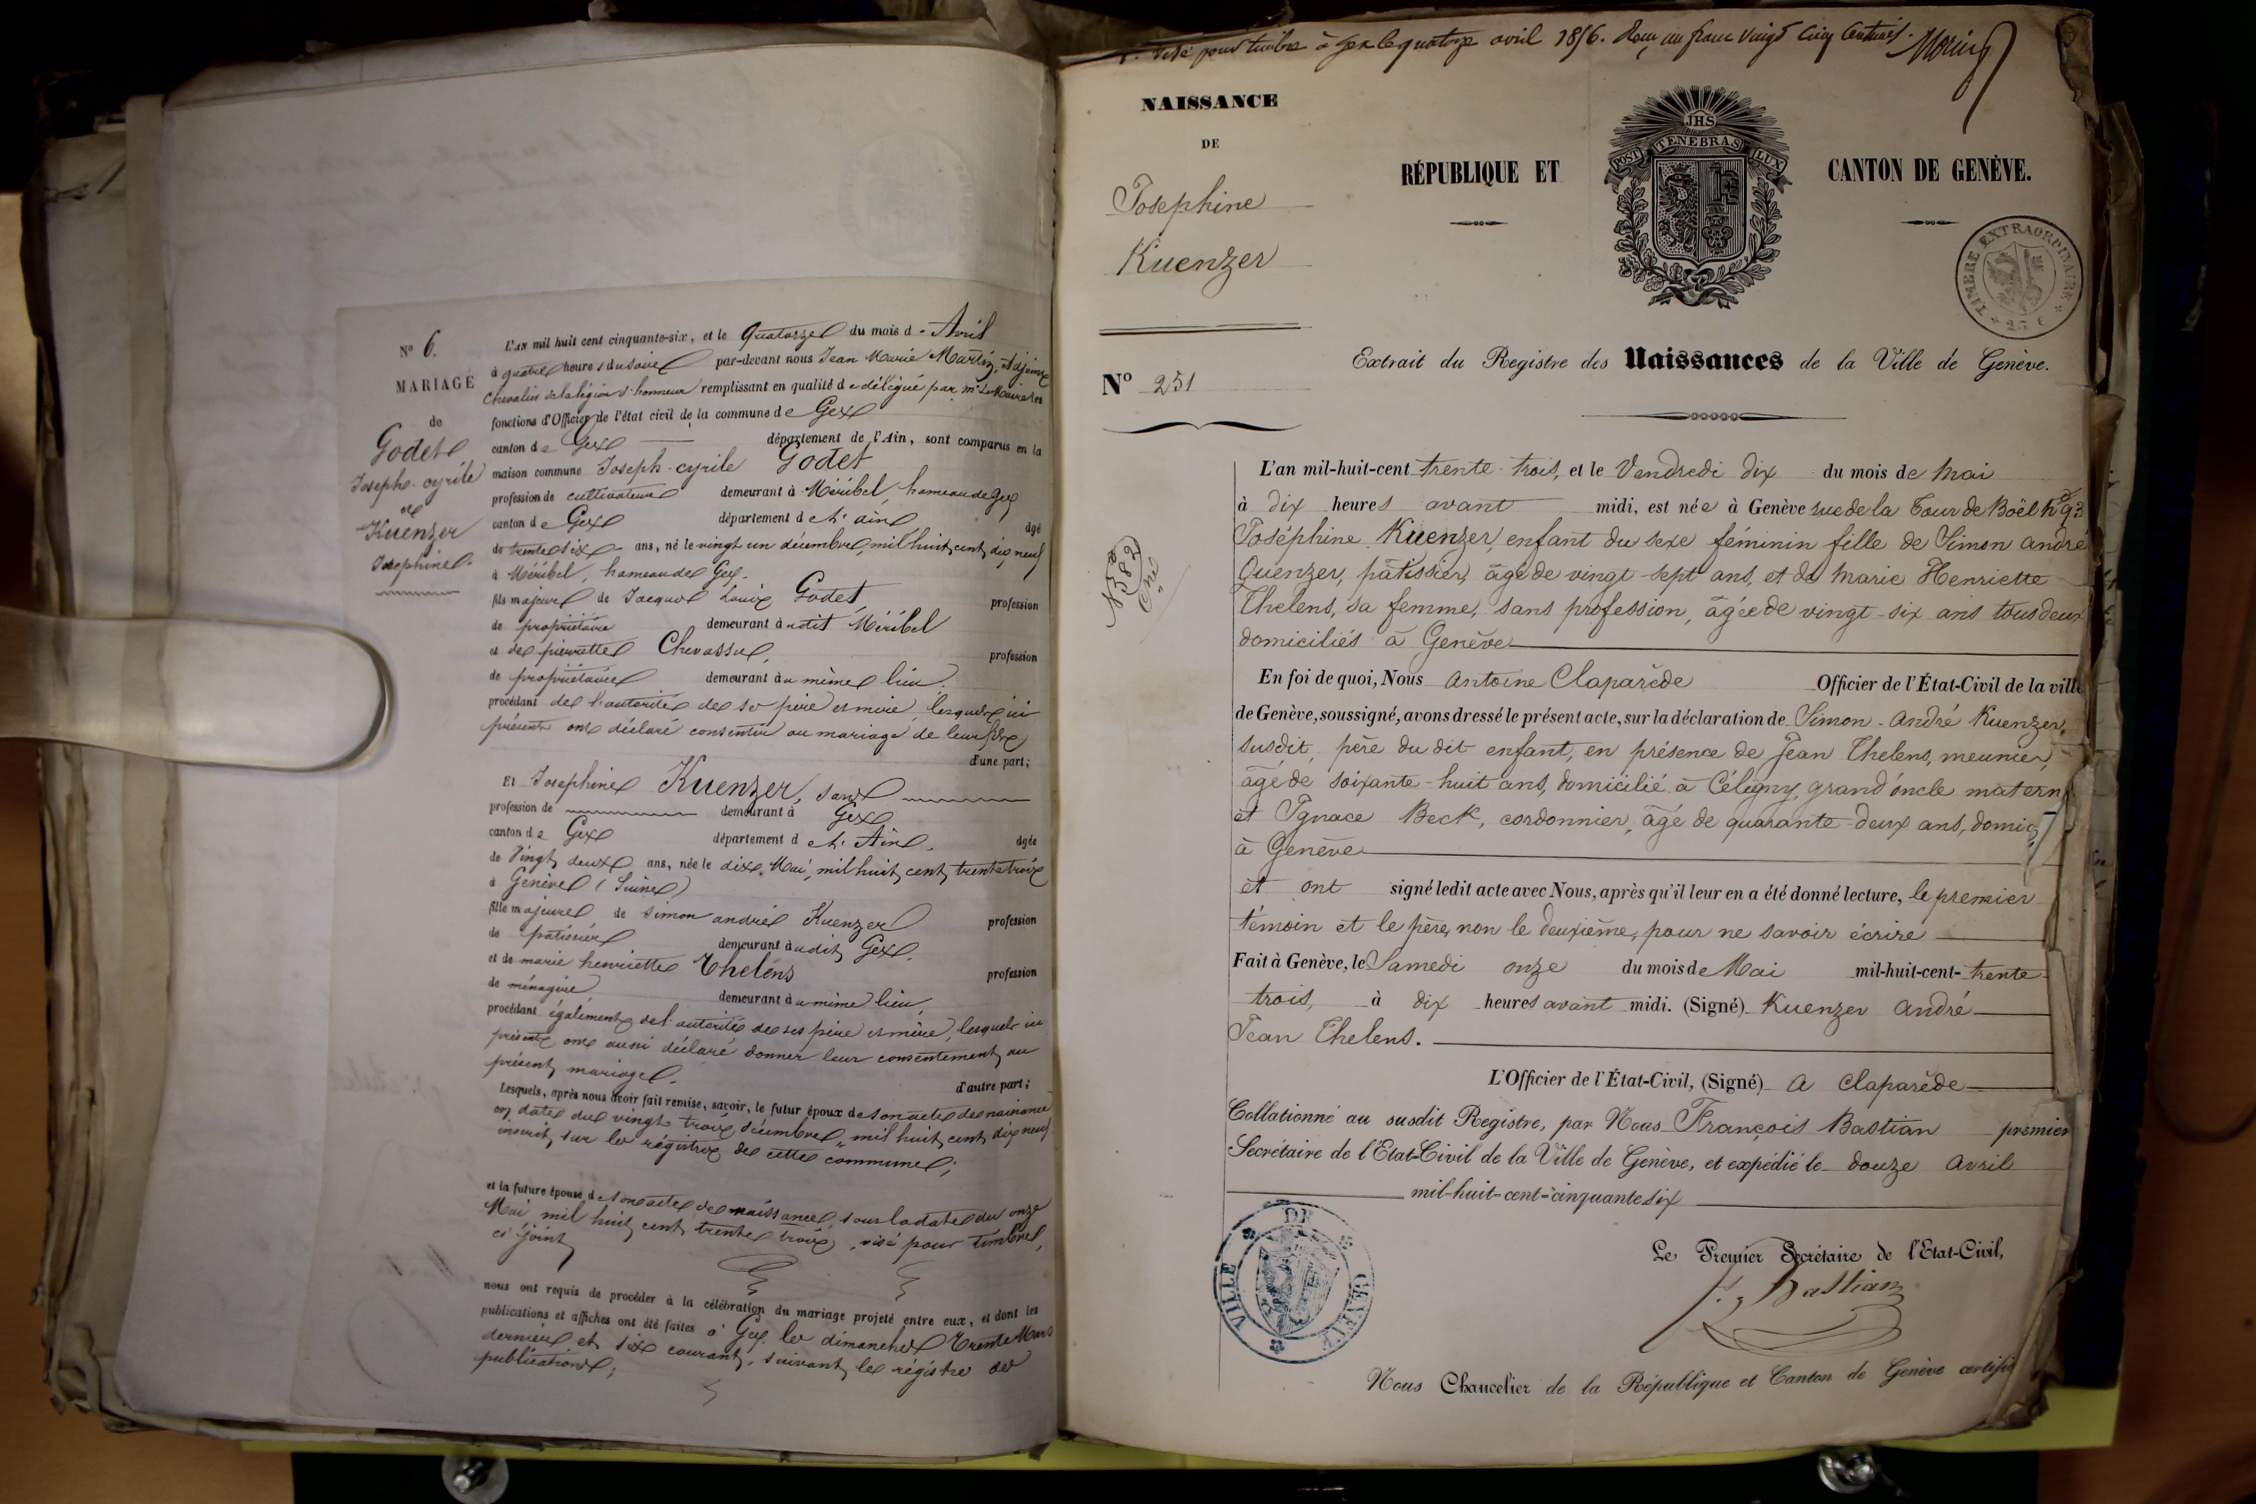 Nº 6.
MARIAGE
de
Godet
Joseph-cyrile
et
Kuenzer
Josephine.
L'AN mil huit cent cinquante-six, et le Quatorze du mois d'Avril
à quatre heures du soir par-devant nous Jean Marie Martin, Adjoint
Chevalier de la légion d'honneur remplissant en qualité de délégué par Mr. Le Maire les
fonctions d'Officier de l'état civil de la commune de Gex
canton de Gex département de l'Ain, sont comparus en la
maison commune Joseph-cyrile Godet
profession de cultivateur demeurant à Méribel, hameau de Gex
canton de Gex département de l'ain âgé
de trente six ans, né le vingt un décembre, mil huit cent dix neuf
à Méribel, hameau de Gex.
fils majeur de Jacques Louis Godet, profession
de propriétaire demeurant audit Méribel
et de pierrette Chevassu, profession
de propriétaire demeurant au même lieu.
procédant de l'autorité de ses père et mère, lesquels ici
présents ont déclaré consentir au mariage de leur fils
d'une part;
Et Josephine Kuenzer, sans
profession de demeurant à Gex
canton de Gex département de l'Ain. âgée
de Vingt deux ans, née le dix Mai, mil huit cent trente trois
à Genève (Suisse)
fille majeure de Simon andré Kuenzer profession
de patissier demeurant audit Gex.
et de marie henriette Thelens profession
de ménagère, demeurant au même lieu,
procédant également de l'autorité de ses père et mère, lesquels ici
présents ont aussi déclaré donner leur consentement au
présent mariage. d'autre part;
Lesquels, après nous avoir fait remise, savoir, le futur époux de son acte de naissance
en date du vingt trois décembre, mil huit cent dix neuf
inscrit sur les régistres de cette commune;
et la future épouse de son acte de naissance, sous la date du onze
Mai mil huit cent trente trois, visé pour timbre,
ci-joint
nous ont requis de procéder à la célébration du mariage projeté entre eux, et dont les
publications et affiches ont été faites à Gex, les dimanches Trente Mars
dernier et six courant, suivant le régistre des
publications;
Visé pour timbre à Gex le quatorze avril 1856. Reçu un franc vingt cinq centimes.
NAISSANCE
DE
Josephine
Kuenzer
Nº 251
RÉPUBLIQUE ET CANTON DE GENÈVE.
JHS
POST TENEBRAS LUX
TIMBRE EXTRAORDINAIRE
Extrait du Registre des Naissances de la Ville de Genève.
L'an mil-huit-cent trente-trois, et le Vendredi dix du mois de Mai
à dix heures avant midi, est née à Genève rue de la Tour de Boël nº 93
Joséphine Kuenzer, enfant du sexe féminin fille de Simon André
Quenzer, pâtissier, âgé de vingt-sept ans, et de Marie Henriette
Thelens, sa femme, sans profession, âgée de vingt-six ans tous deux
domiciliés à Genève
En foi de quoi, Nous Antoine Claparède Officier de l'État-Civil de la ville
de Genève, soussigné, avons dressé le présent acte, sur la déclaration de Simon-André Kuenzer,
susdit, père du dit enfant, en présence de Jean Thelens, meunier,
âgé de soixante-huit ans, domicilié à Céligny, grand oncle matern
et Ignace Beck, cordonnier, âgé de quarante-deux ans, domic
à Genève
et ont signé ledit acte avec Nous, après qu'il leur en a été donné lecture, le premier
témoin et le père, non le deuxième, pour ne savoir écrire
Fait à Genève, le Samedi onze du mois de Mai mil-huit-cent-trente-
trois, à dix heures avant midi. (Signé) Kuenzer André
Jean Thelens.
L'Officier de l'État-Civil, (Signé) A Claparède
Collationné au susdit Registre, par Nous François Bastian premier
Secrétaire de l'Etat-Civil de la Ville de Genève, et expédié le douze Avril
mil-huit-cent-cinquante six
VILLE DE GENEVE
Le Premier Secrétaire de l'Etat-Civil,
F. Bastian
Nous Chancelier de la République et Canton de Genève certifi